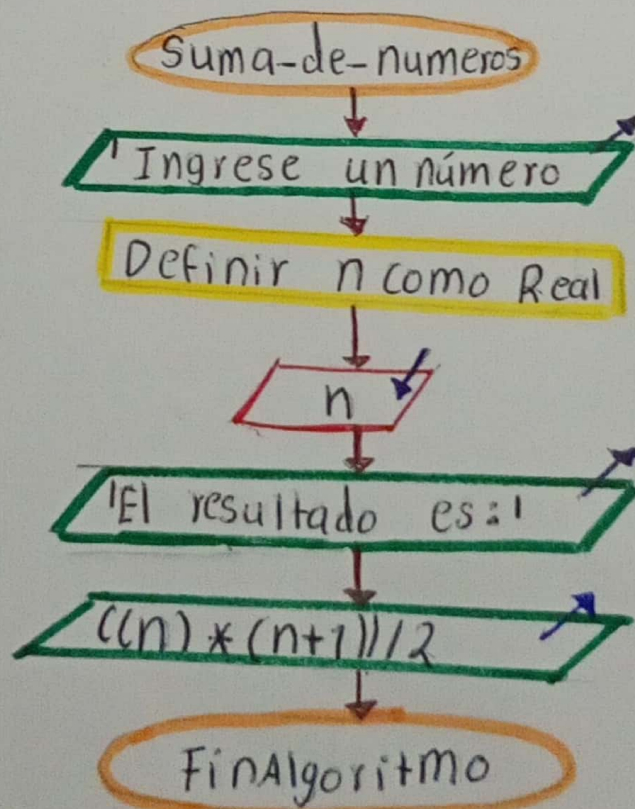 Suma-de-numeros
'Ingrese un número
Definir n como Real
n
'El resultado es:'
((n)*(n+1))/2
FinAlgoritmo